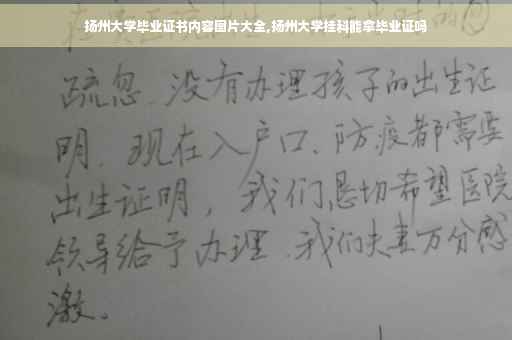 扬州大学毕业证书内容图片大全,扬州大学挂科能拿毕业证吗
疏忽、没有办理孩子的出生证
明。现在入户口、防疫都需要
出生证明，我们恳切希望医院
领导给予办理、我们夫妻万分感
激。